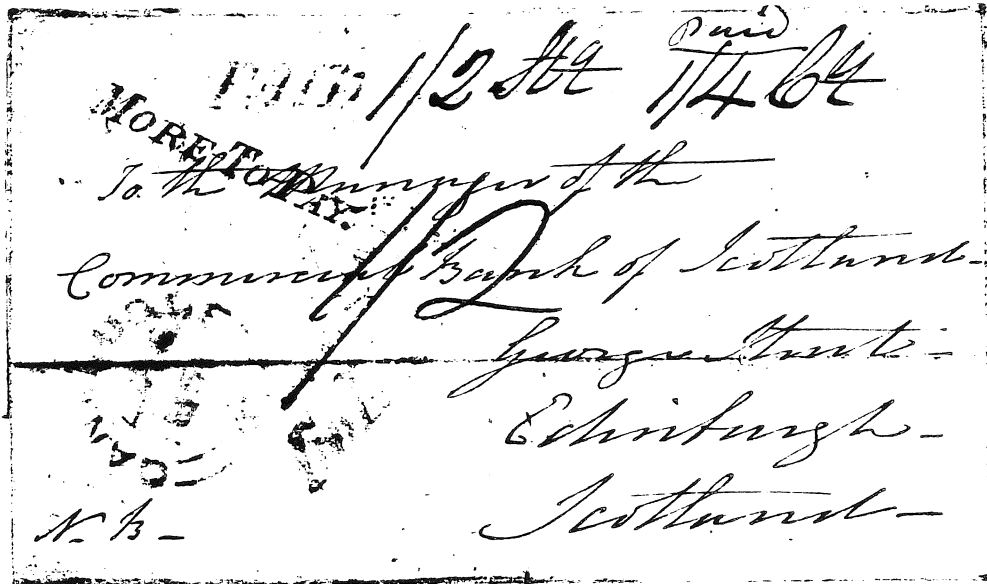 paid
PAID 1/2 Stg 1/4 Cy
MORE TO PAY.
To the Manager of the
1/2
Commercial Bank of Scotland-
George Street-
Edinburgh-
Scotland-
N. B-